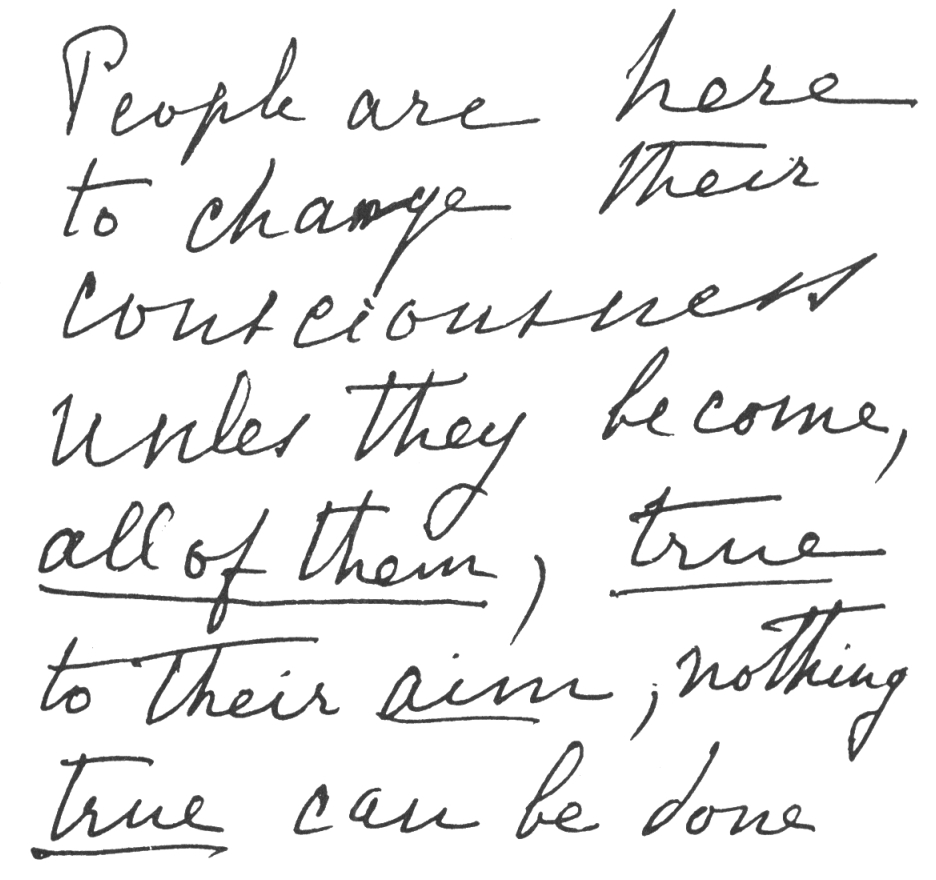 People are here
to change their
consciousness
unles they become,
all of them, true
to their aim, nothing
true can be done